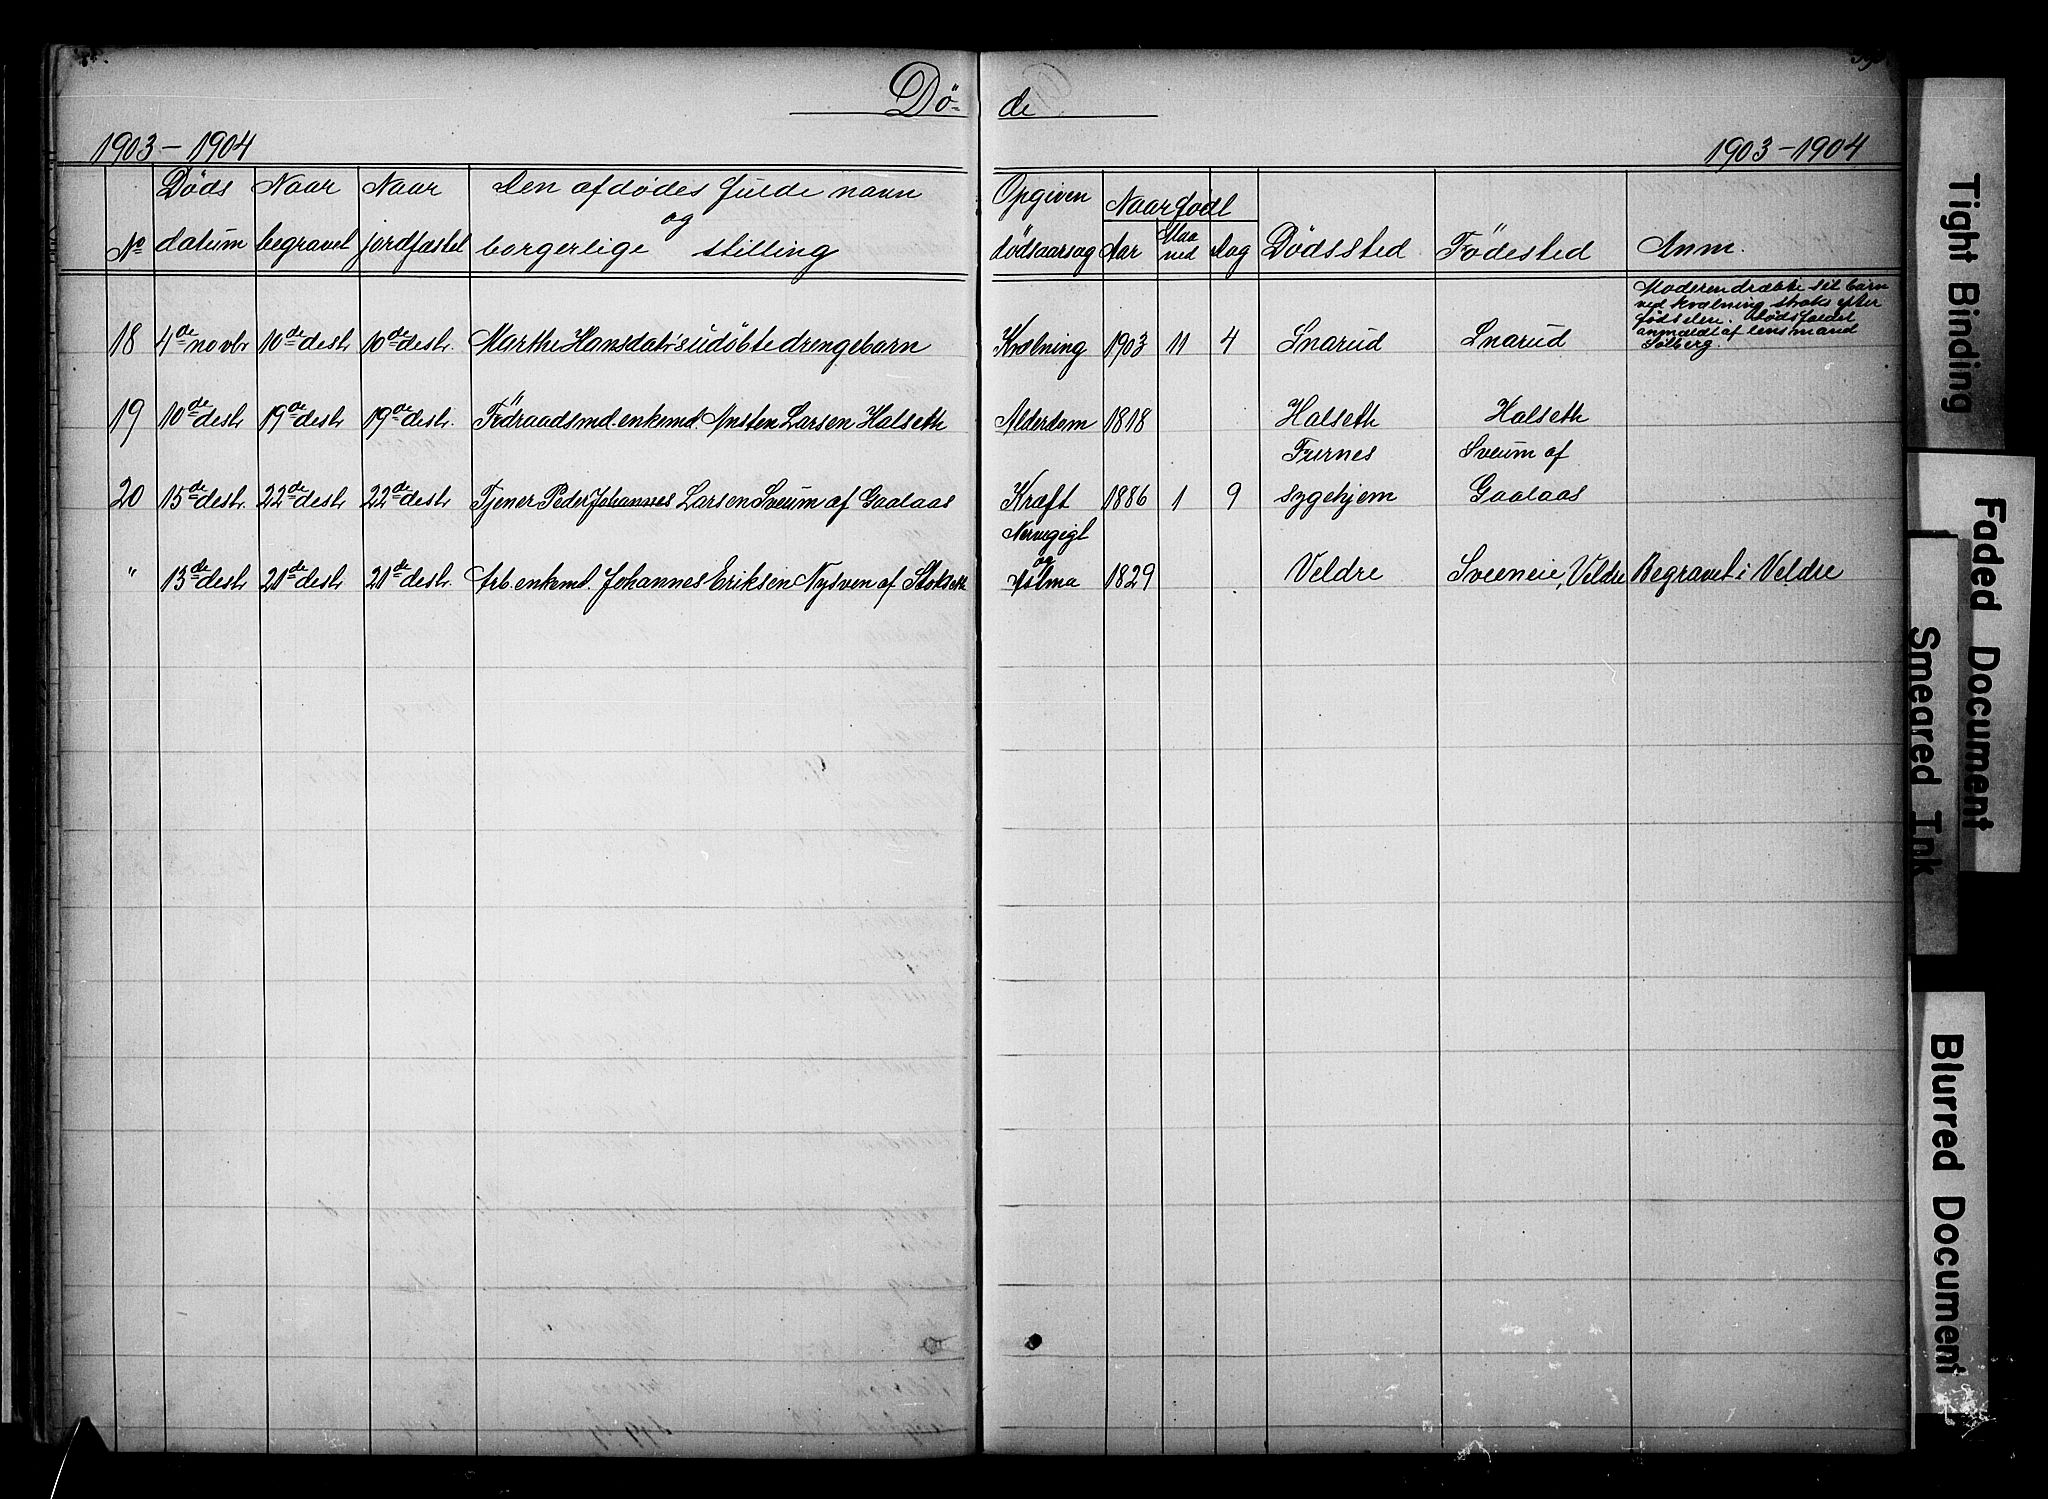 Dö- de
1903 - 1904 1903 - 1904
No Döds datum Naar begravet Naar jordfæstet Den afdödes fulde navn og borgerlige stilling Opgiven dödsaarsag Naar födt Aar Maaned Dag Dödssted Födested Anm.
18 4de novbr 10de desbr 10de desbr. Marthe Hansdatr's udöbte drengebarn Kvælning 1903 11 4 Snarud Snarud Moderen dræbte sit barn
ved kvælning straks efter
födselen. Dödsfaldet
anmældt af lensmand
Solberg.
19 10de desbr 19de desbr 19de desbr. Födraadsmd. enkemd. Ansten Larsen Halseth Alderdom 1818 Halseth Halseth
20 15de desbr. 22de desbr 22de desbr Tjener Peder Johannes Larsen Sveum af Gaalaas Kræft 1886 1 9 Furnes sygehjem Sveum af Gaalaas
" 13de desbr 21de desbr 21de desbr. Arb. enkemd. Johannes Eriksen Nysven af Stokseth Nervegigt og Astma 1829 Veldre Sveeneie, Veldre Begravet i Veldre
Tight Binding
Faded Document
Smeared Ink
Blurred Document